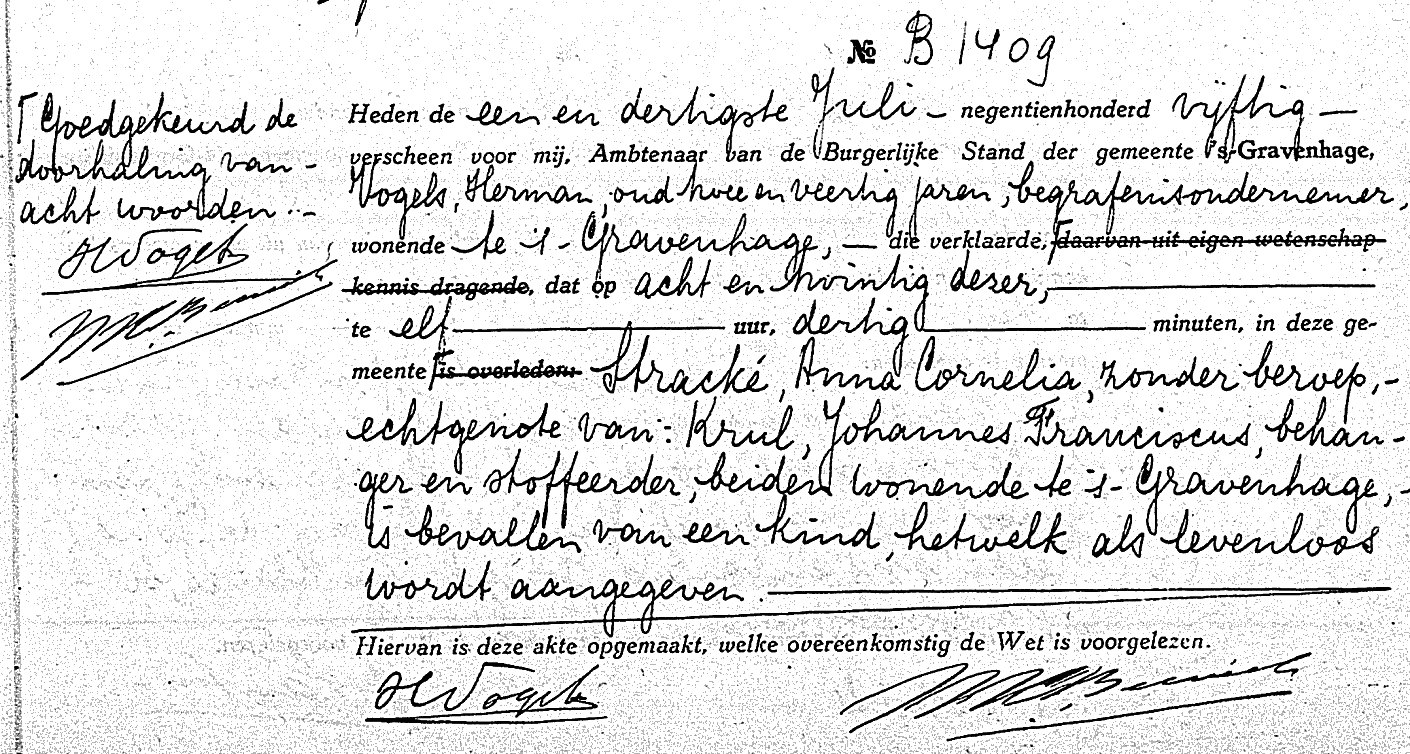 № B 1409
Goedgekeurd de
doorhaling van -
acht woorden. -
HVogels
Heden de een en dertigste Juli - negentienhonderd vijftig -
verscheen voor mij, Ambtenaar van de Burgerlijke Stand der gemeente 's-Gravenhage,
Vogels, Herman, oud twee en veertig jaren, begrafenisondernemer,
wonende te 's-Gravenhage, - die verklaarde, daarvan uit eigen wetenschap
kennis dragende, dat op acht en twintig dezer,
te elf uur, dertig minuten, in deze ge-
meente is overleden: Stracké, Anna Cornelia, zonder beroep, -
echtgenote van: Krul, Johannes Franciscus, behan-
ger en stoffeerder, beiden wonende te 's-Gravenhage, -
is bevallen van een kind, hetwelk als levenloos
wordt aangegeven.
Hiervan is deze akte opgemaakt, welke overeenkomstig de Wet is voorgelezen.
HVogels